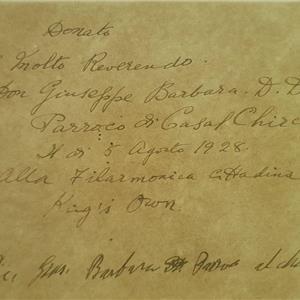 Donato
Molto Reverendo.
Don Giuseppe Barbara. D. D.
Parroco di Casal Chirc
Il di 5 Agosto 1928.
Alla Filarmonica Cittadina
King's Own
Gius. Barbara